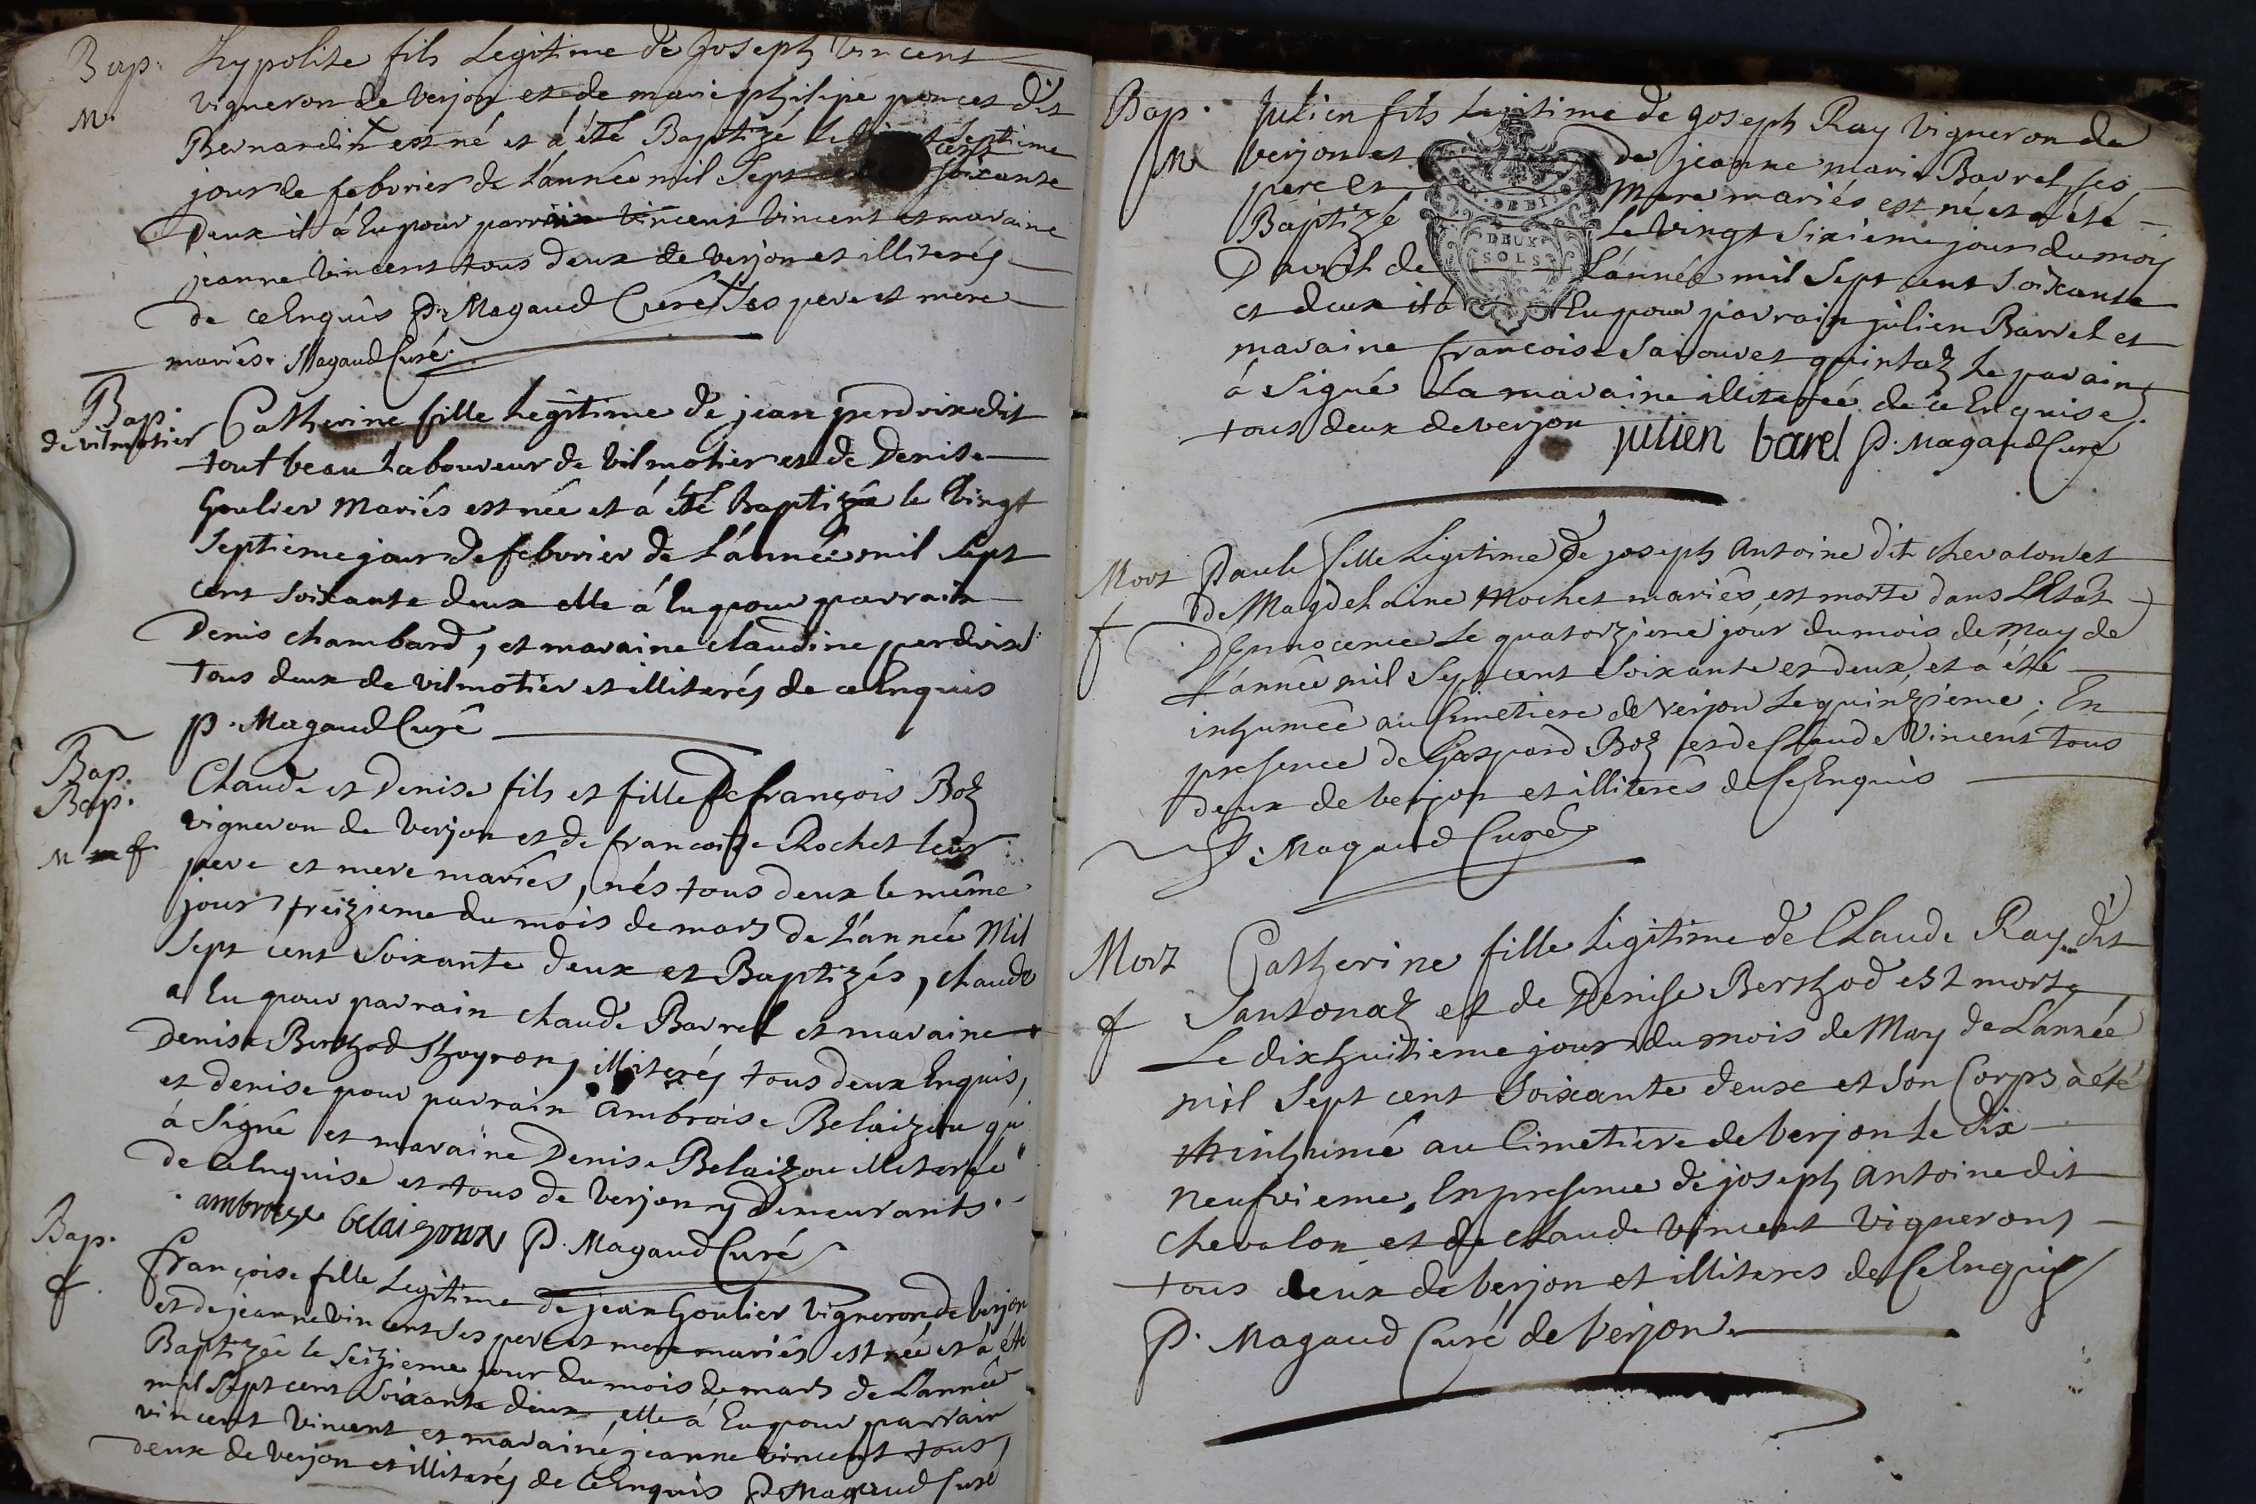 Bap.
M.
hypolite fils Legitime de Joseph Vincent
vigneron de verjon et de marie philipe poncet dit
Bernardin + est né et á été Baptizé le vingt septieme
jour de febvrier de L'année mil Sept cent soixante
Deux il á Eu pour parrain Vincent Vincent et maraine
jeanne Vincent tous deux de verjon et illiterés
de ce Enquis P. Magaud Curé + ses pere et mere
mariés. Magaud Curé
Bap.
de vilmotier
Catherine fille Legitime de jean perdrix dit
tout beau Laboureur de vilmotier et de Denise
Goulier Mariés est née et á été Baptizée le vingt
Septieme jour de febvrier de L'année mil Sept
cent soixante deux elle á Eu pour parrain
Denis chambard, et maraine claudine perdrix
tous deux de vilmotier et illiterés de ce Enquis
P. Magaud Curé
Bap.
Bap.
M f
Claude et Denise fils et fille de françois Boz
vigneron de Verjon et de francoise Rochet leur
pere et mere mariés, nés tous deux le même
jour treizieme du mois de mars de L'année Mil
Sept cent Soixante deux et Baptizés, claude
a Eu pour parrain claude Barrel et maraine
Denise Berthod illiterés tous deux Enquis,
et denise pour parrain ambroise Belaizou qui
á Signé et maraine Denise Belaizou illiterée
de ce Enquise et tous de Verjon y Demeurants.
ambroise belaizoux P. Magaud Curé
Bap.
f.
françoise fille Legitime de jean Goulier vigneron de Verjon
et de jeanne vincent ses pere et mere mariés est née et á été
Baptizée le seizieme jour du mois de mars de L'année
mil Sept cent Soixante deux, elle á Eu pour parrain
vincent Vincent et maraine jeanne vincent tous
deux de verjon et illiterés de ce Enquis P. Magaud Curé
Bap.
M
Julien fils Legitime de Joseph Ray Vigneron de
verjon et de jeanne marie Barrel ses
pere et Mere mariés est né et á été
Baptizé Le vingt sixieme jour du moy
D'avril de L'année mil Sept cent soixante
et deux il a Eu pour parrain julien Barrel et
maraine francoise Savouret quintaz le parain
á Signé La maraine illiterée de ce Enquise.
tous deux de verjon julien barel P. Magaud Curé
DEUX
SOLS
Mort
f
Paule fille Legitime de joseph Antoine dit chevalon et
de Magdelaine Mochet mariés, est morte dans L'Etat
D'Ynnocence Le quatorzieme jour du mois de May de
L'année mil Sept cent Soixante et deux, et á été
inhumée au Cimetiere de Verjon Le quinzieme; En
presence de Gaspard Boz et de Claude Vincent tous
deux de verjon et illiterés de Ce Enquis
P. Magaud Curé
Mort
f
Catherine fille Legitime de Claude Ray dit
Santonaz et de Denise Berthod est morte
Le dixhuitieme jour du mois de May de L'année
mil Sept cent Soixante deux et son Corps à été
inhumé au Cimetiere de Verjon Le dix
neufvieme, En presence de joseph Antoine dit
chevalon et de claude Vincent Vignerons
tous deux de verjon et illiteres de Ce Enquis
P. Magaud Curé de Verjon